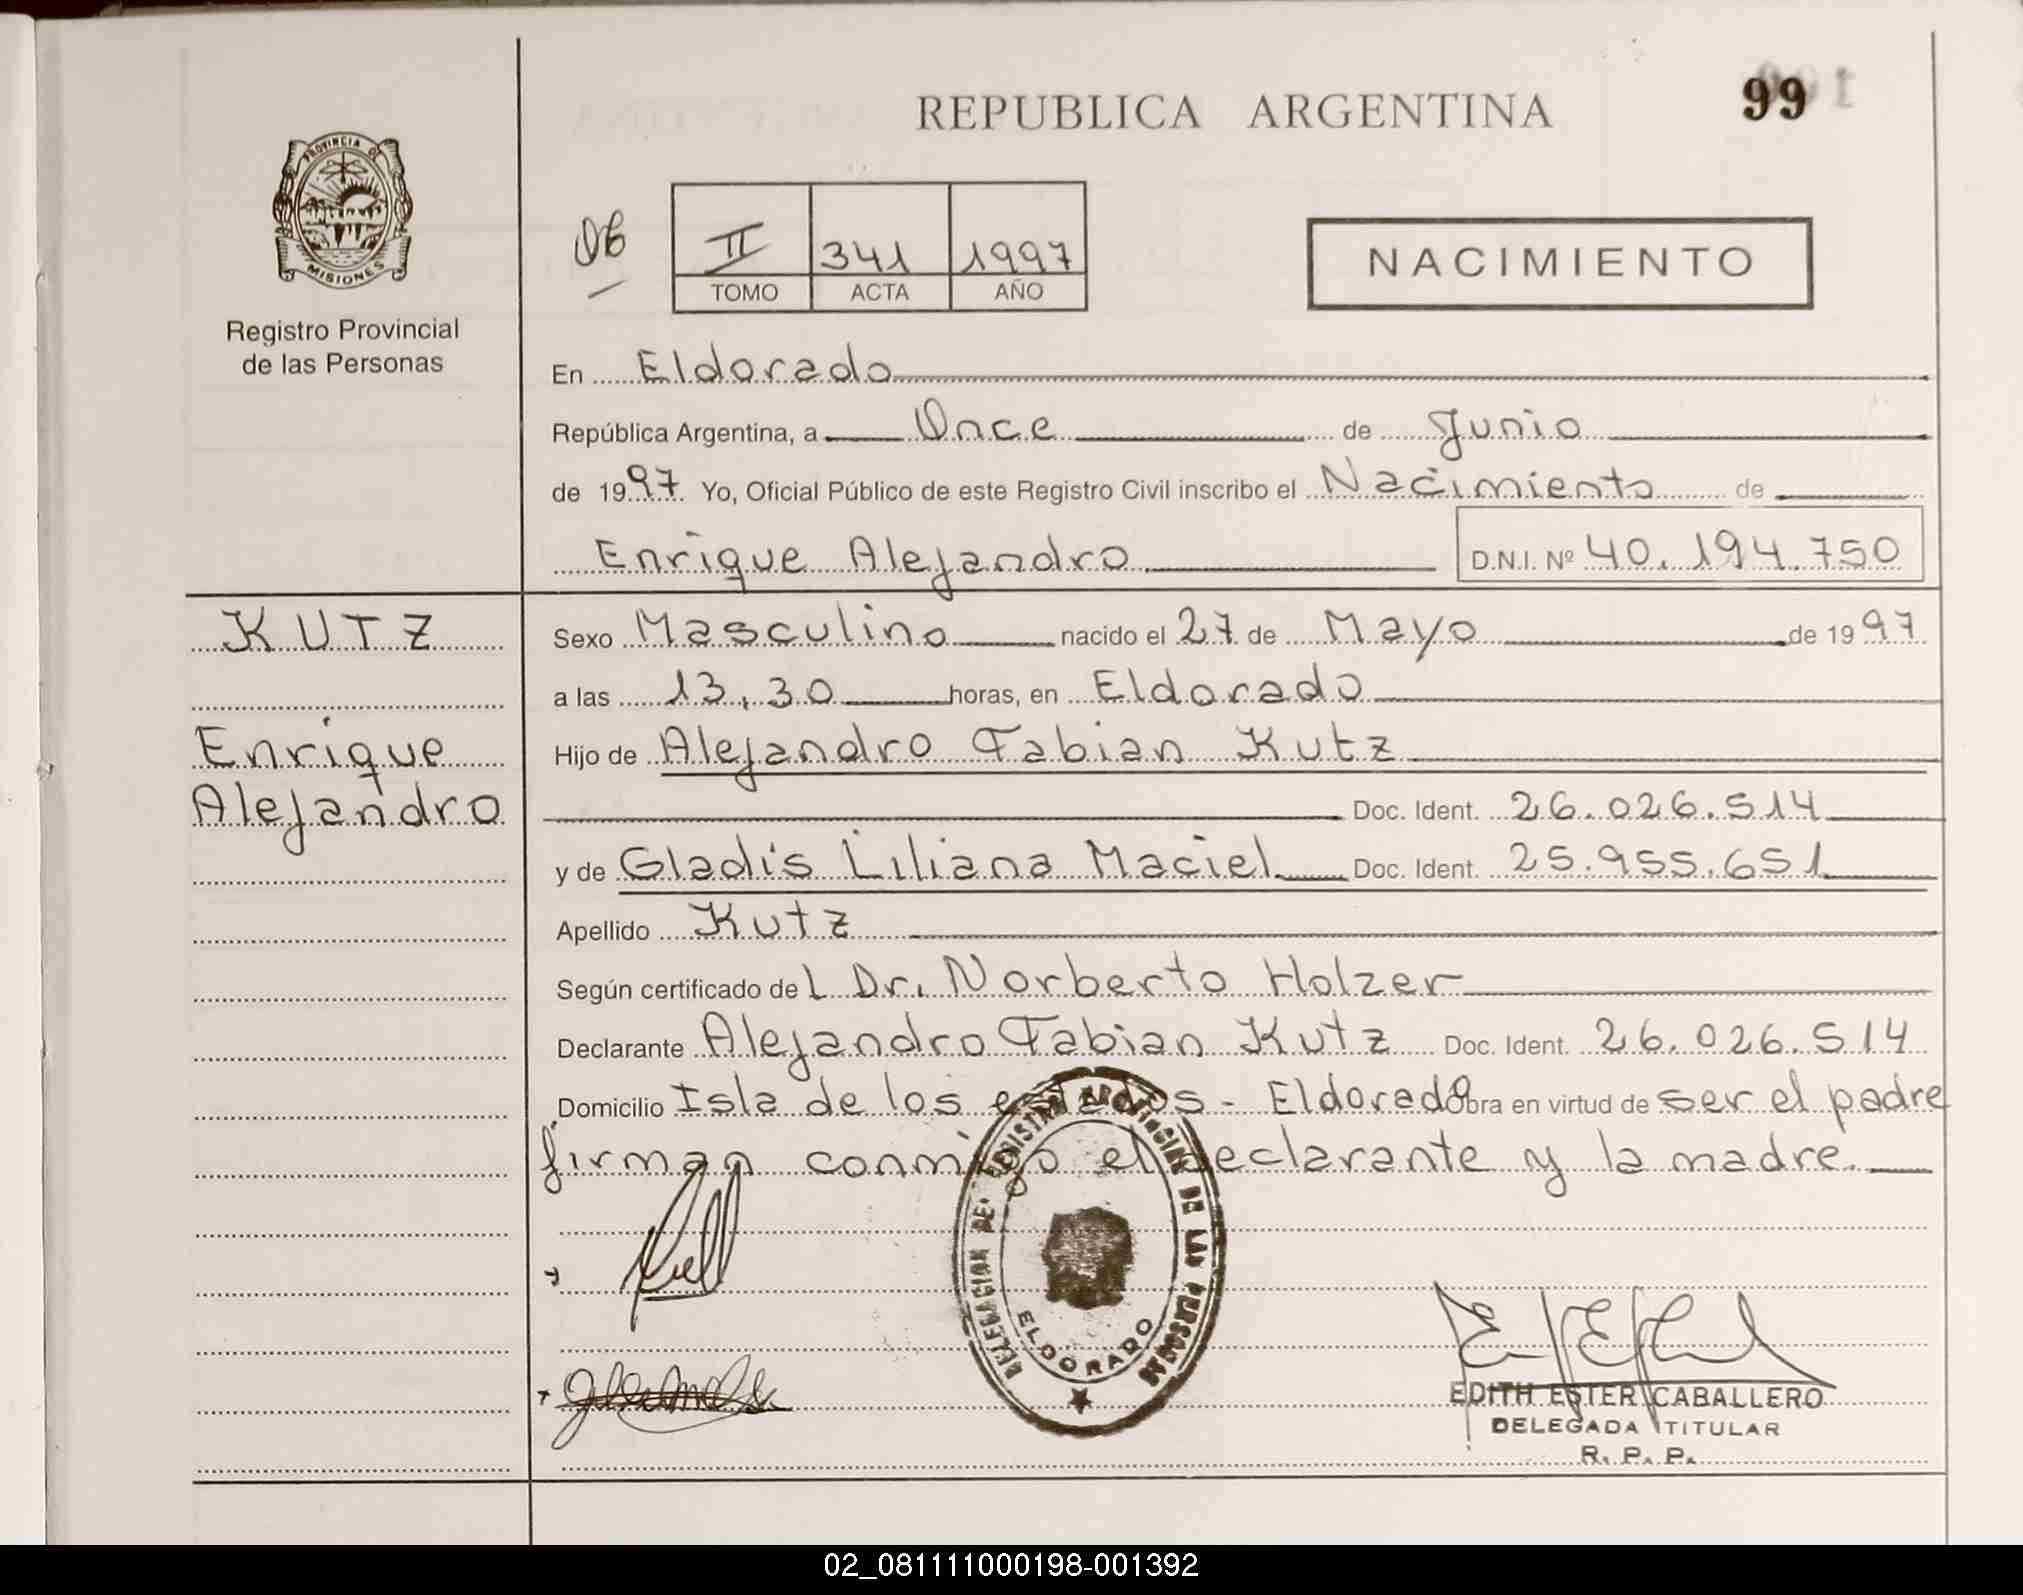 REPUBLICA ARGENTINA
99
PROVINCIA DE
MISIONES
Registro Provincial
de las Personas
II 341 1997
TOMO ACTA AÑO
NACIMIENTO
En Eldorado
República Argentina, a Once de Junio
de 1997. Yo, Oficial Público de este Registro Civil inscribo el Nacimiento de
Enrique Alejandro D.N.I. Nº 40.194.750
KUTZ
Enrique
Alejandro
Sexo Masculino nacido el 27 de Mayo de 1997
a las 13,30 horas, en Eldorado
Hijo de Alejandro Fabian Kutz
Doc. Ident. 26.026.514
y de Gladis Liliana Maciel Doc. Ident. 25.955.651
Apellido Kutz
Según certificado del Dr. Norberto Holzer
Declarante Alejandro Fabian Kutz Doc. Ident. 26.026.514
Domicilio Isla de los estados - Eldorado Obra en virtud de ser el padre
firman conmigo el declarante y la madre.
DELEGACION DEL REGISTRO PROVINCIAL DE LAS PERSONAS
ELDORADO
EDITH ESTER CABALLERO
DELEGADA TITULAR
R. P. P.
02_081111000198-001392